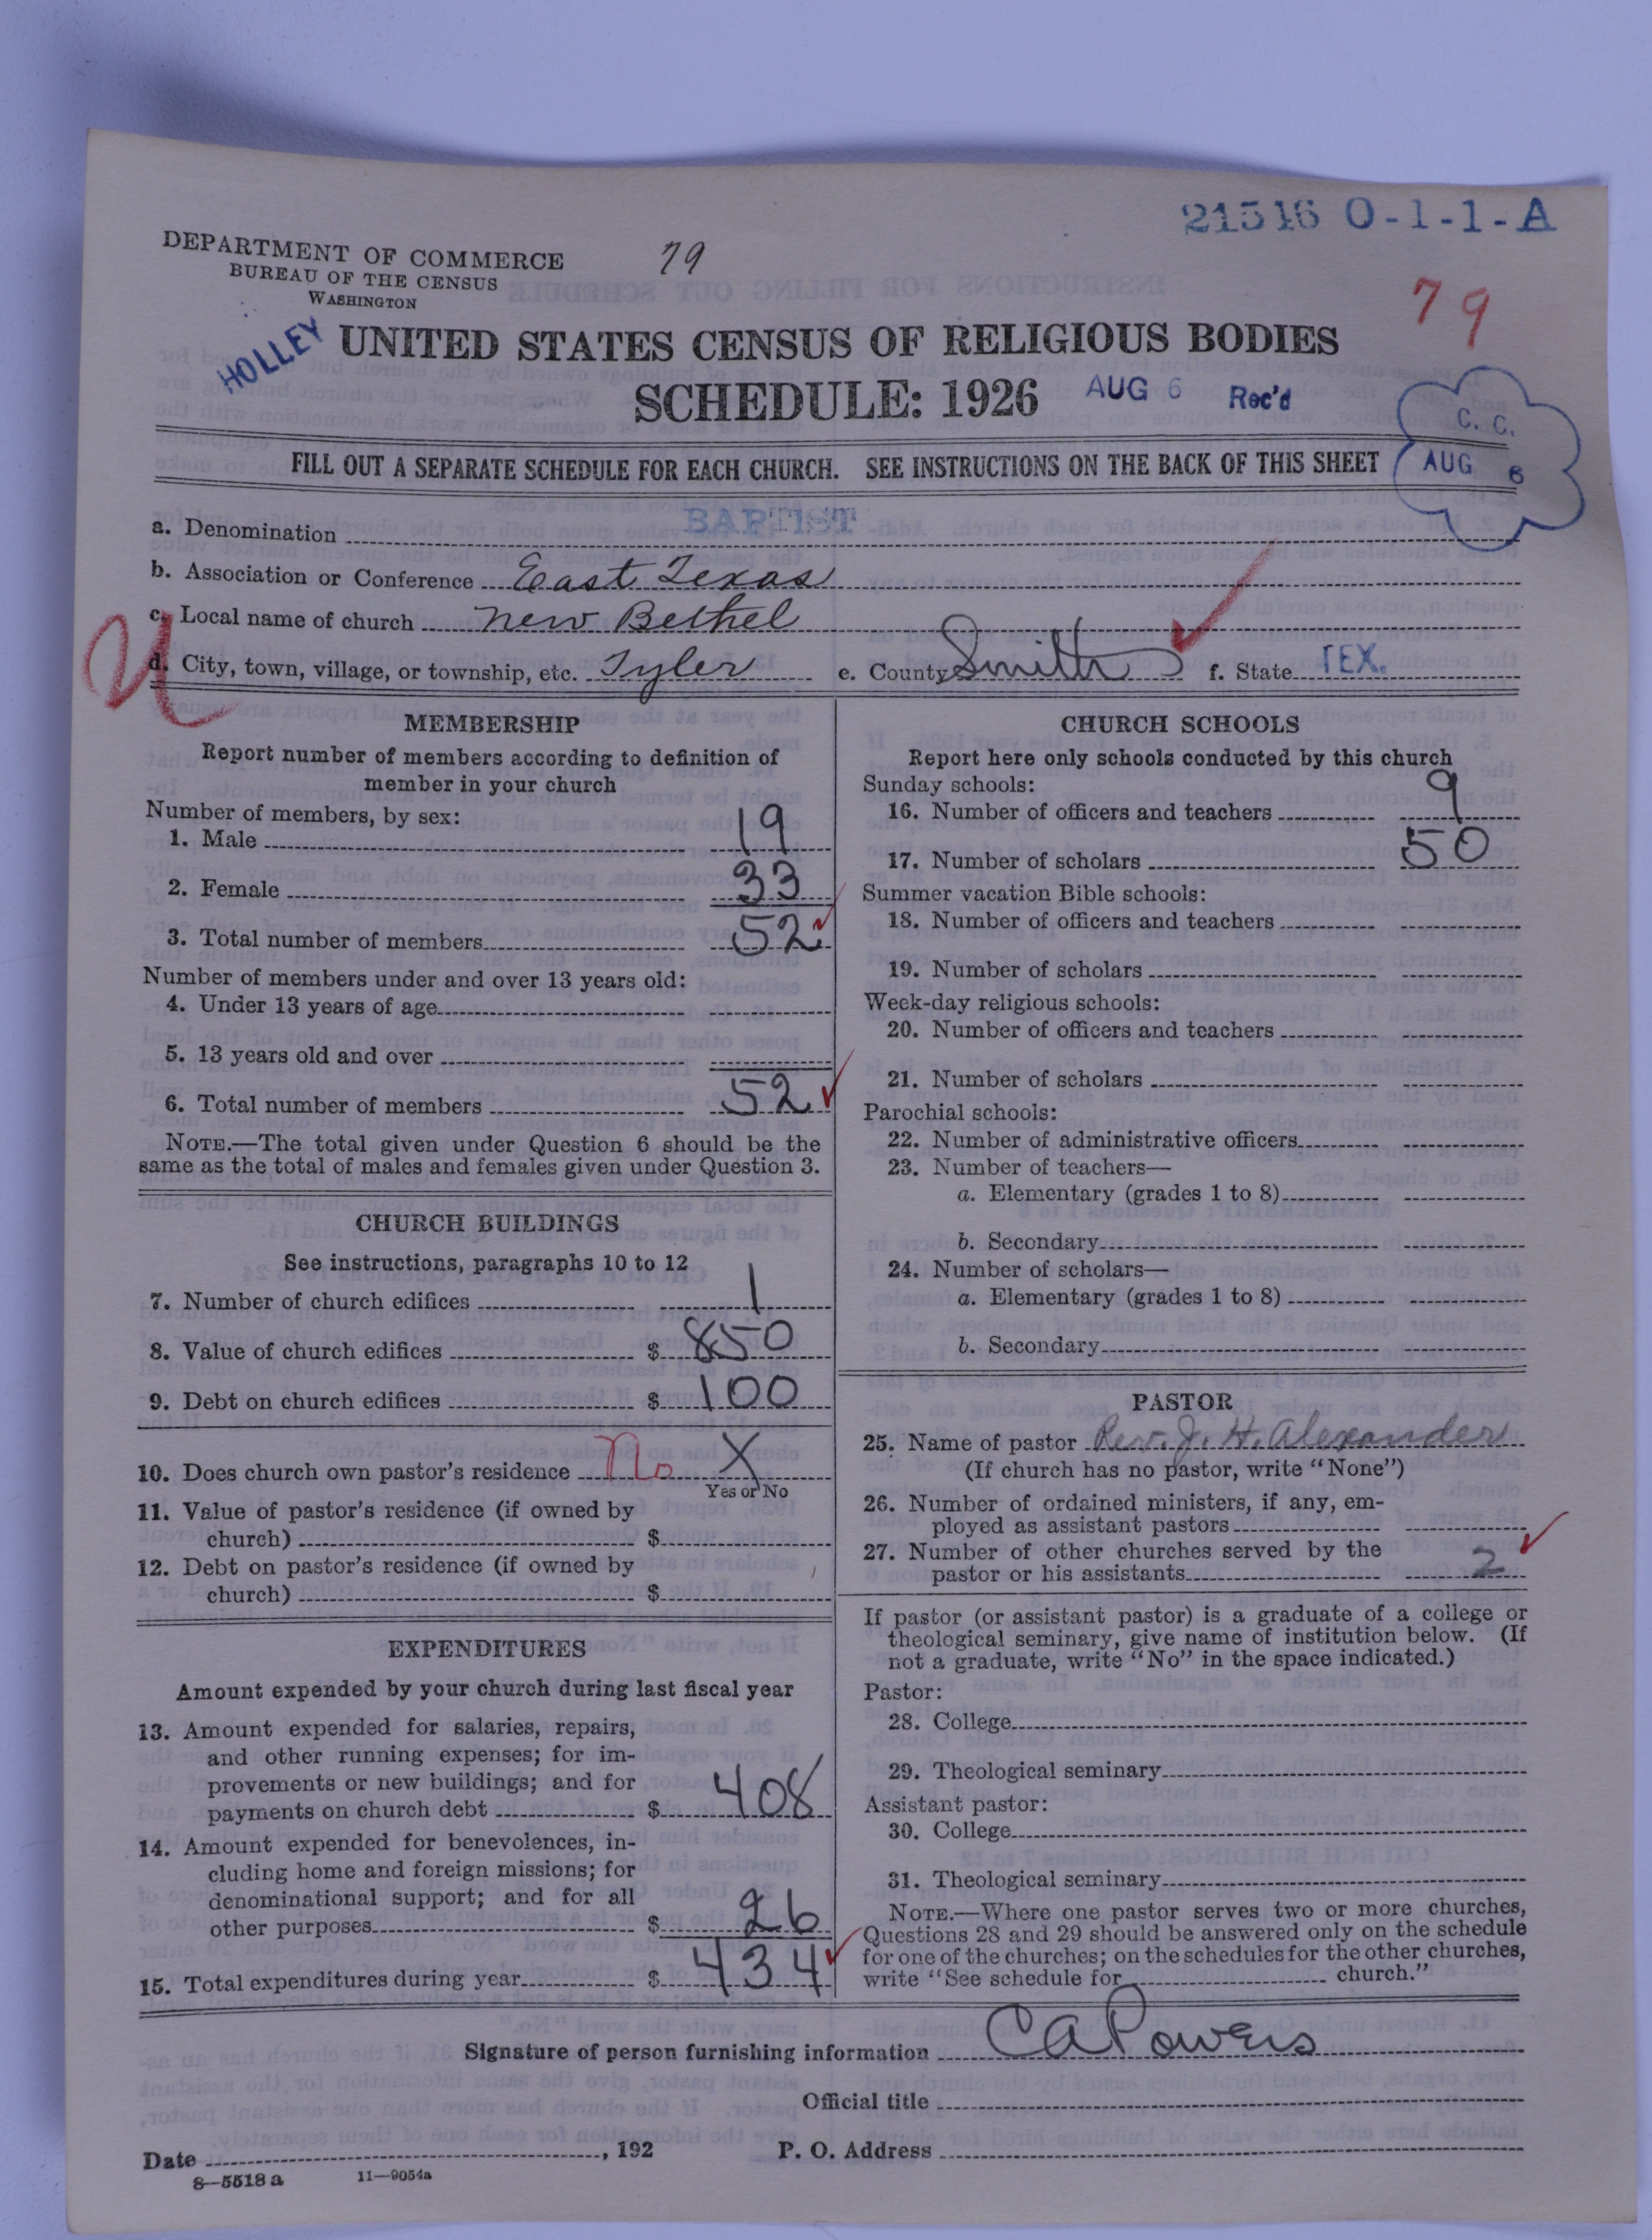 21516 O-1-1-A
DEPARTMENT OF COMMERCE
BUREAU OF THE CENSUS
WASHINGTON
79
79
HOLLEY
UNITED STATES CENSUS OF RELIGIOUS BODIES
SCHEDULE: 1926
AUG 6 Rec'd
C. C.
AUG 6
FILL OUT A SEPARATE SCHEDULE FOR EACH CHURCH. SEE INSTRUCTIONS ON THE BACK OF THIS SHEET
a. Denomination BAPTIST
b. Association or Conference East Texas
c. Local name of church New Bethel
d. City, town, village, or township, etc. Tyler e. County Smith f. State TEX.
MEMBERSHIP
Report number of members according to definition of
member in your church
Number of members, by sex:
1. Male 19
2. Female 33
3. Total number of members 52
Number of members under and over 13 years old:
4. Under 13 years of age
5. 13 years old and over
6. Total number of members 52
NOTE.—The total given under Question 6 should be the
same as the total of males and females given under Question 3.
CHURCH BUILDINGS
See instructions, paragraphs 10 to 12
7. Number of church edifices 1
8. Value of church edifices $ 850
9. Debt on church edifices $ 100
10. Does church own pastor's residence No X
Yes or No
11. Value of pastor's residence (if owned by
church) $
12. Debt on pastor's residence (if owned by
church) $
EXPENDITURES
Amount expended by your church during last fiscal year
13. Amount expended for salaries, repairs,
and other running expenses; for im-
provements or new buildings; and for
payments on church debt $ 408
14. Amount expended for benevolences, in-
cluding home and foreign missions; for
denominational support; and for all
other purposes $ 26
15. Total expenditures during year $ 434
CHURCH SCHOOLS
Report here only schools conducted by this church
Sunday schools:
16. Number of officers and teachers 9
17. Number of scholars 50
Summer vacation Bible schools:
18. Number of officers and teachers
19. Number of scholars
Week-day religious schools:
20. Number of officers and teachers
21. Number of scholars
Parochial schools:
22. Number of administrative officers
23. Number of teachers—
a. Elementary (grades 1 to 8)
b. Secondary
24. Number of scholars—
a. Elementary (grades 1 to 8)
b. Secondary
PASTOR
25. Name of pastor Rev. J. H. Alexander
(If church has no pastor, write "None")
26. Number of ordained ministers, if any, em-
ployed as assistant pastors
27. Number of other churches served by the
pastor or his assistants 2
If pastor (or assistant pastor) is a graduate of a college or
theological seminary, give name of institution below. (If
not a graduate, write "No" in the space indicated.)
Pastor:
28. College
29. Theological seminary
Assistant pastor:
30. College
31. Theological seminary
NOTE.—Where one pastor serves two or more churches,
Questions 28 and 29 should be answered only on the schedule
for one of the churches; on the schedules for the other churches,
write "See schedule for church."
Signature of person furnishing information CA Powers
Official title
Date , 192 P. O. Address
8—5518 a 11—9054a